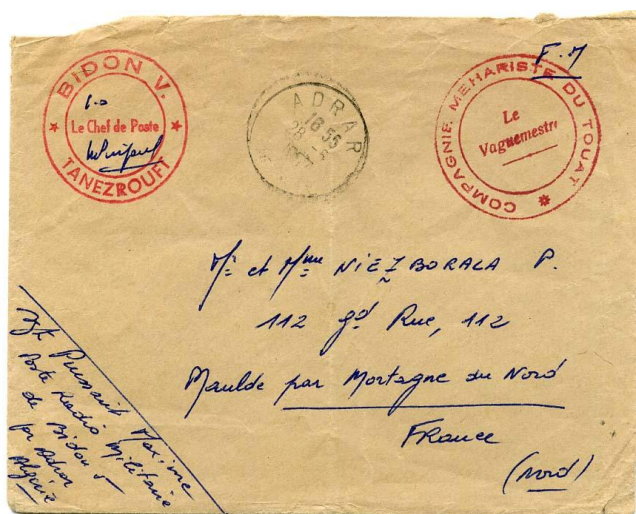 F.M
BIDON V.
Le Chef de Poste
TANEZROUFT
ADRAR
16 55
28 - 
COMPAGNIE MEHARISTE DU TOUAT
Le
Vaguemestre
Mr et Mme NIEZBORALA P.
112 gd Rue, 112
Maulde par Mortagne du Nord
France
(Nord)
Maxime
Poste Radio Militaire
de Bidon 5
par Adrar
Algérie